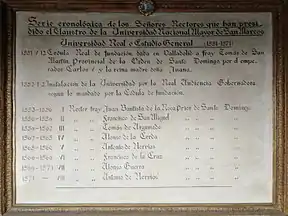 Serie cronológica de los Señores Rectores que han presi-
dido el claustro de la Universidad Nacional Mayor de San Marcos
Universidad Real o Estudio General (1551-1571)
1551 Cédula Real de fundación, dada en Valladolid a fray Tomás de San
Martín, Provincial de la Orden de Santo Domingo por el empe-
rador Carlos V y la reina madre doña Juana.
1553 Instalación de la Universidad por la Real Audiencia Gobernadora
según lo mandado por la Cédula de fundación.
Rector fray Juan Bautista de la Roca Prior de Santo Domingo
II " " Francisco de San Miguel " " "
III " " Tomás de Argumedo " " "
IV " " Alonso de la Cerda " " "
V " " Antonio de Hervias " " "
VI " " Francisco de la Cruz " " "
VII " " Alonso Guerra " " "
1571 VIII " " Antonio de Hervias " " "